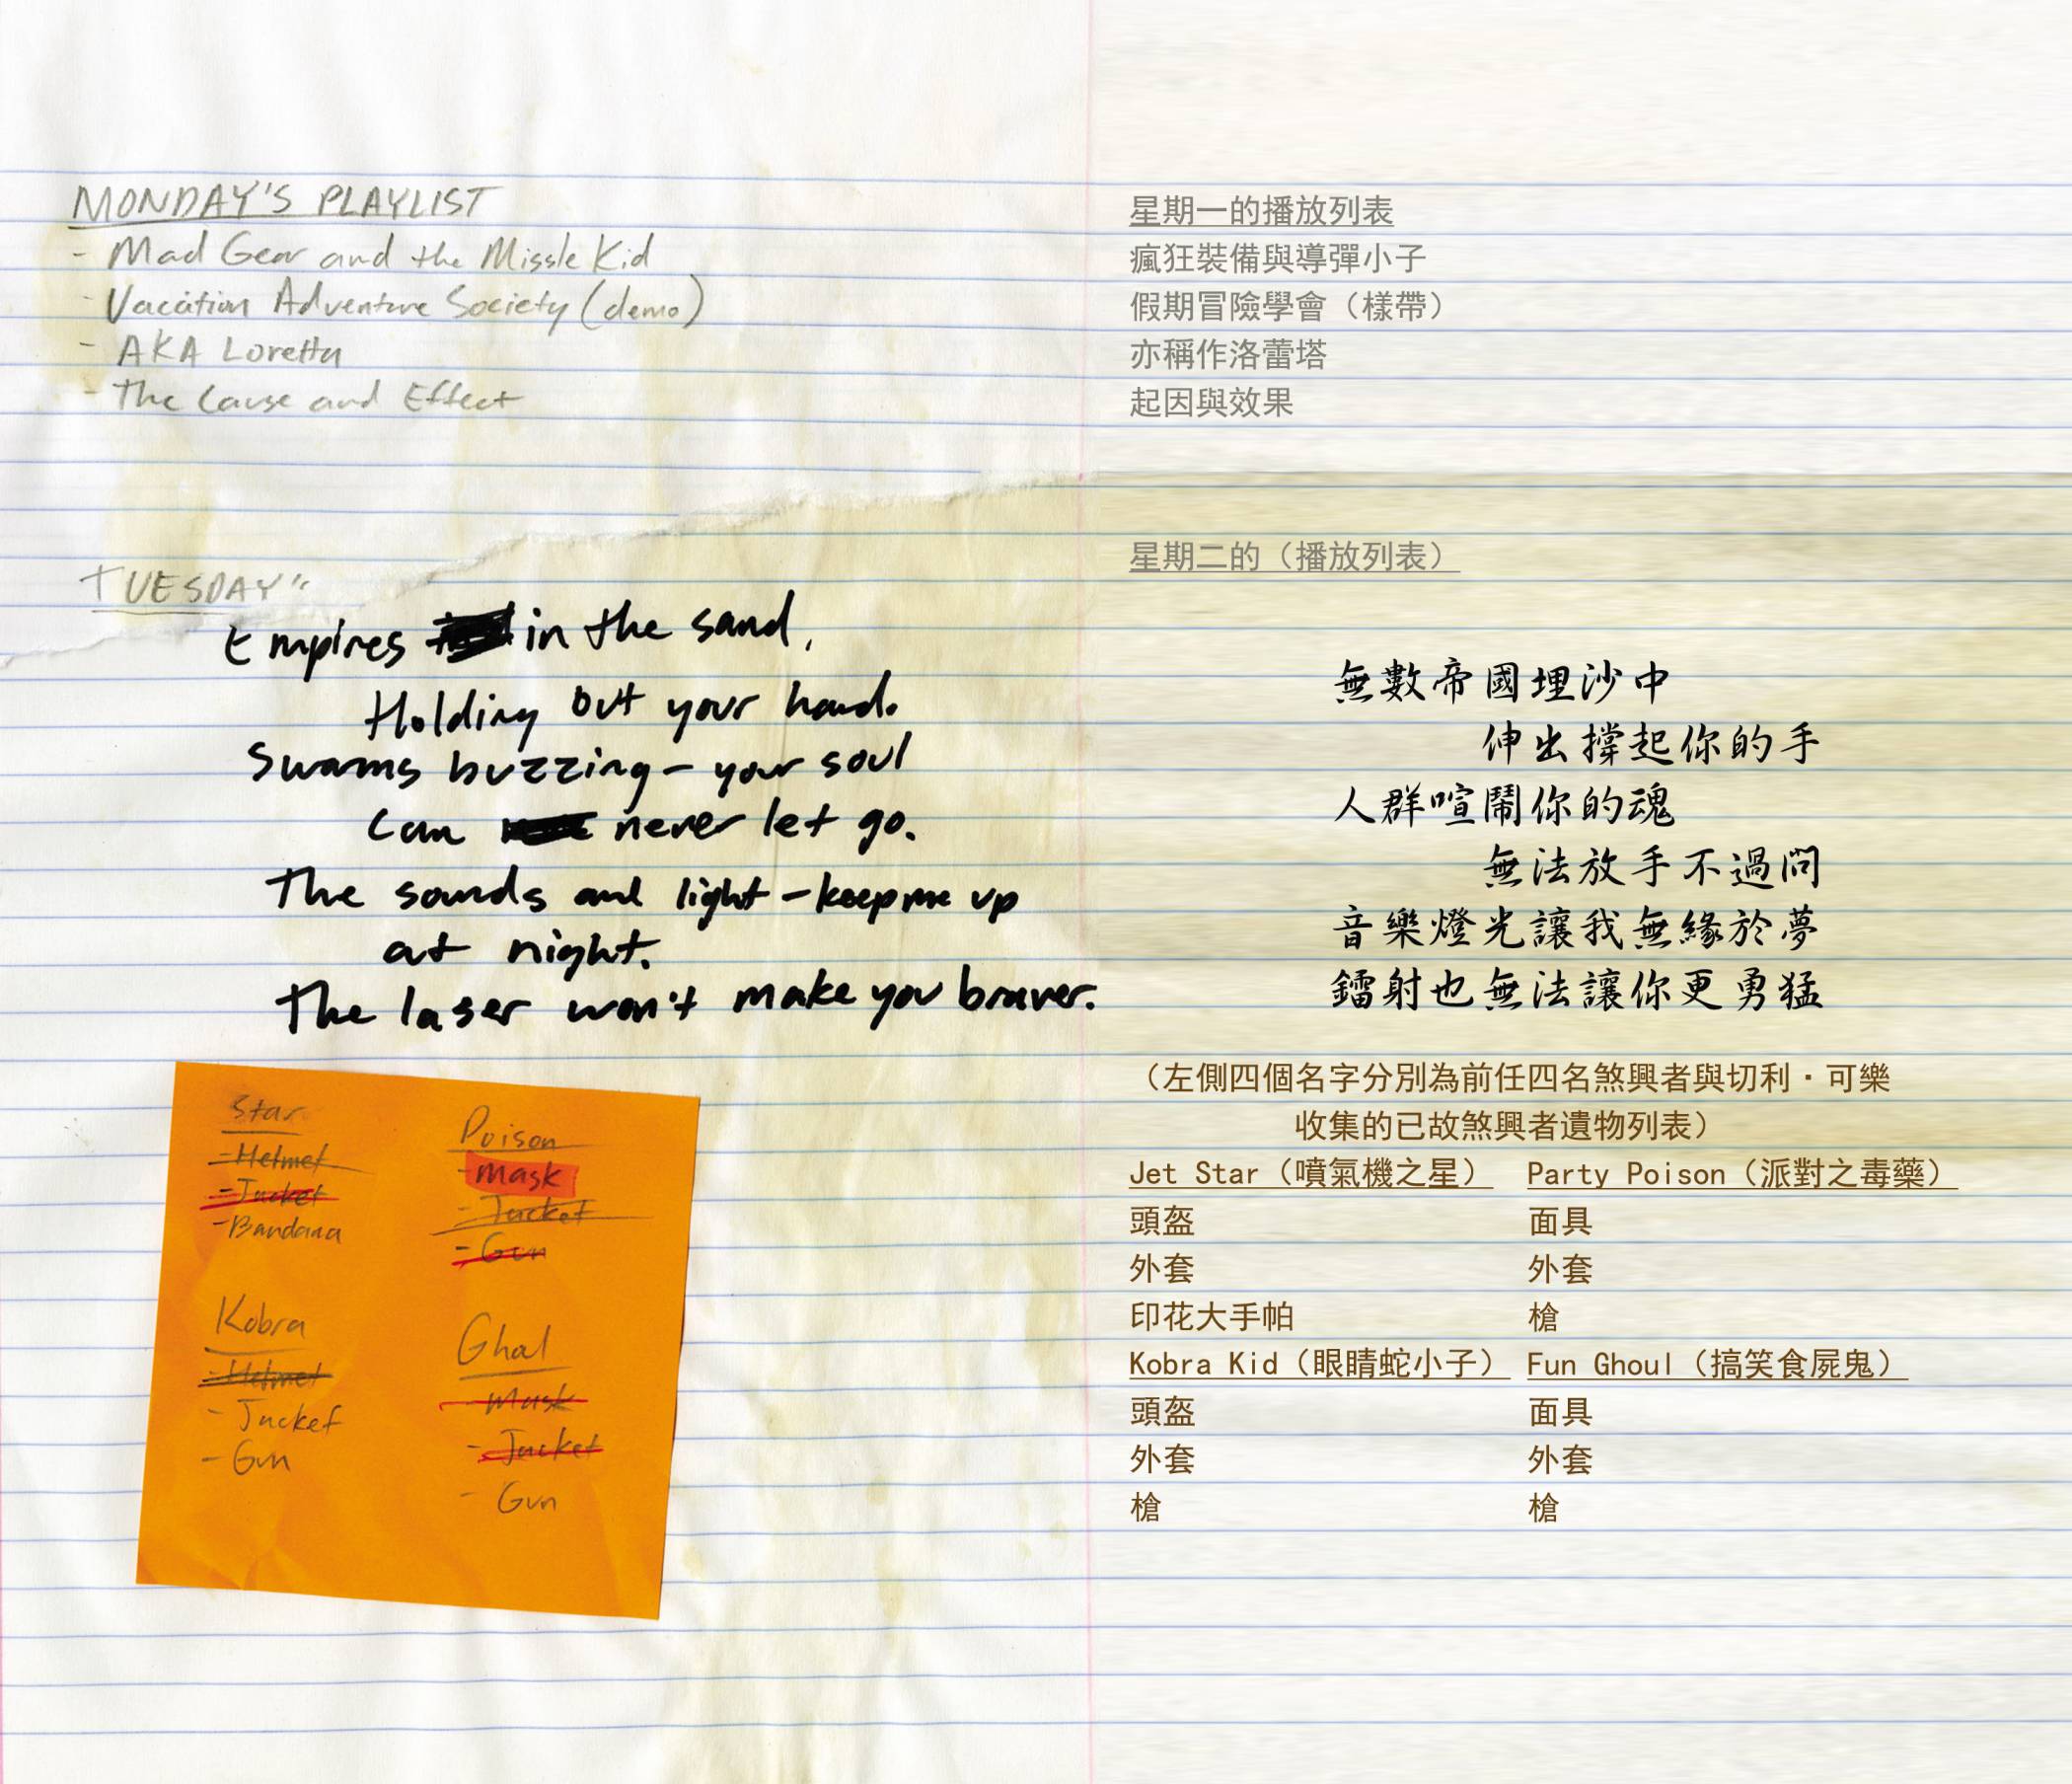 MONDAY'S PLAYLIST
- Mad Gear and the Missle Kid
- Vacation Adventure Society (demo)
- AKA Loretta
- The Cause and Effect
TUESDAY'S
Empires in the sand,
Holding out your hand.
Swarms buzzing - your soul
can never let go.
The sounds and light - keep me up
at night.
The laser won't make you braver.
Star
- Helmet
- Jacket
- Bandana
Poison
- Mask
- Jacket
- Gun
Kobra
- Helmet
- Jacket
- Gun
Ghoul
- Mask
- Jacket
- Gun
星期一的播放列表
瘋狂裝備與導彈小子
假期冒險學會（樣帶）
亦稱作洛蕾塔
起因與效果
星期二的（播放列表）
無數帝國埋沙中
伸出撐起你的手
人群喧鬧你的魂
無法放手不過問
音樂燈光讓我無緣於夢
鐳射也無法讓你更勇猛
（左側四個名字分別為前任四名煞興者與切利·可樂
收集的已故煞興者遺物列表）
Jet Star（噴氣機之星） Party Poison（派對之毒藥）
頭盔 面具
外套 外套
印花大手帕 槍
Kobra Kid（眼睛蛇小子） Fun Ghoul（搞笑食屍鬼）
頭盔 面具
外套 外套
槍 槍